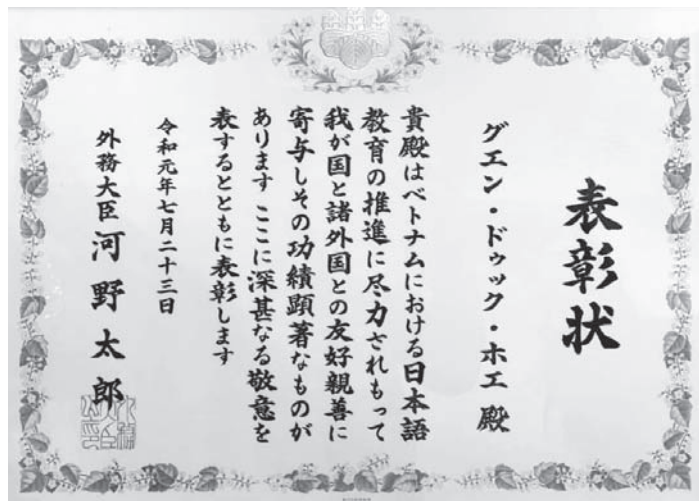 表彰状
グエン・ドゥック・ホエ 殿
貴殿はベトナムにおける日本語
教育の推進に尽力されもって
我が国と諸外国との友好親善に
寄与しその功績顕著なものが
あります ここに深甚なる敬意を
表するとともに表彰します
令和元年七月二十三日
外務大臣 河野太郎